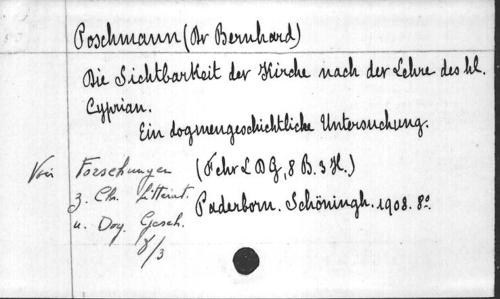 Poschmann (Dr Bernhard)
Die Sichtbarkeit der Kirche nach der Lehre des hl.
Cyprian.
Ein dogmengeschichtliche Untersuchung.
Voir Forschungen (F chr L D G, 8 B. 3 H.)
z. Ch. Litterat. Paderborn. Schöningh. 1908. 8º
u. Dog. Gesch.
8/3